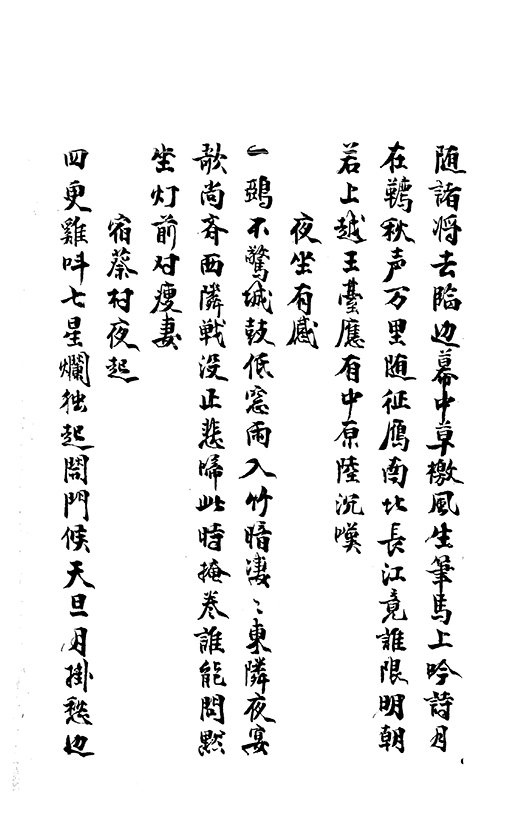 随諸将去臨边幕中草檄風生筆馬上吟詩月
在鞯秋声万里随征鴈南北長江竟誰限明朝
若上越王臺應有中原陸沉嘆
夜坐有感
一鵶不驚城鼓低窓雨入竹暗淒〻東隣夜宴
歌尚吝西隣戦没正悲啼此時掩卷誰能問黙
坐灯前对瘦妻
宿蔡村夜起
四更雞呌七星爛独起開門候天旦月掛愁边